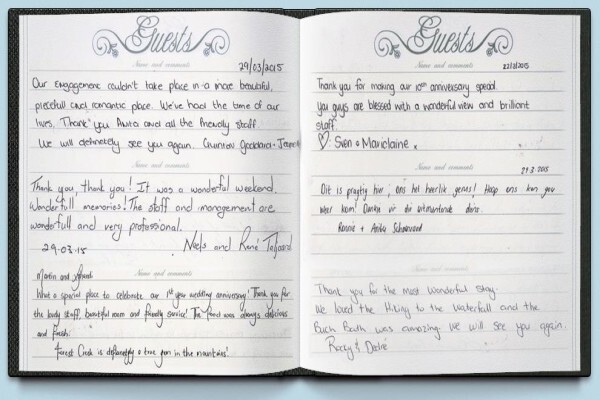 Guests
Name and comments
29/03/2015
Our Engagement couldn't take place in a more beautiful,
peacefull and romantic place. We've had the time of our
lives. Thank you Anita and all the friendly staff.
We will definately see you again.
Name and comments
Thank you, thank you! It was a wonderful weekend.
Wonderfull memories! The staff and management are
wonderfull and very professional.
29-03-15 Niels and René Taljaard
Name and comments
Martin and
What a special place to celebrate our 1st year wedding anniversary! Thank you for
the lovely staff, beautiful room and friendly service! The food was always delicious
and fresh.
Forest Creek is definately a true gem in the mountains!
Guests
Name and comments
22/3/2015
Thank you for making our 10th anniversary special.
You guys are blessed with a wonderful view and brilliant
staff.
♡ Sven & Mariclaine x
Name and comments
29-3-2015
Dit is pragtig hier, ons het heerlik genies! Hoop ons kan gou
weer kom! Dankie vir die uitmuntende diens.
Ronnie + Anika
Name and comments
Thank you for the most wonderful stay.
We loved the Hiking to the waterfall and the
Bush Bath was amazing. we will see you again.
Rocky & Deidré